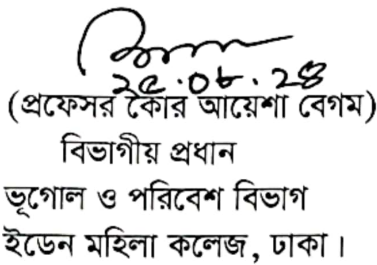 ২৫.০৮.২৪
(প্রফেসর কৈার আয়েশা বেগম)
বিভাগীয় প্রধান
ভূগোল ও পরিবেশ বিভাগ
ইডেন মহিলা কলেজ, ঢাকা।